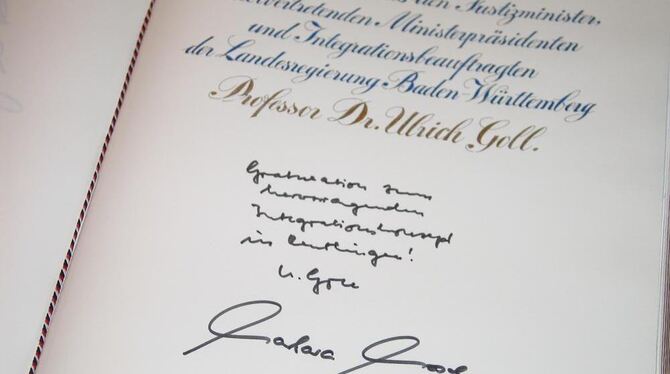 den Justizminister,
Ministerpräsidenten
und Integrationsbeauftragten
der Landesregierung Baden-Württemberg
Professor Dr. Ulrich Goll.
Gratulation zum
hervorragenden
Integrationskonzept
in Reutlingen!
U. Goll
Barbara